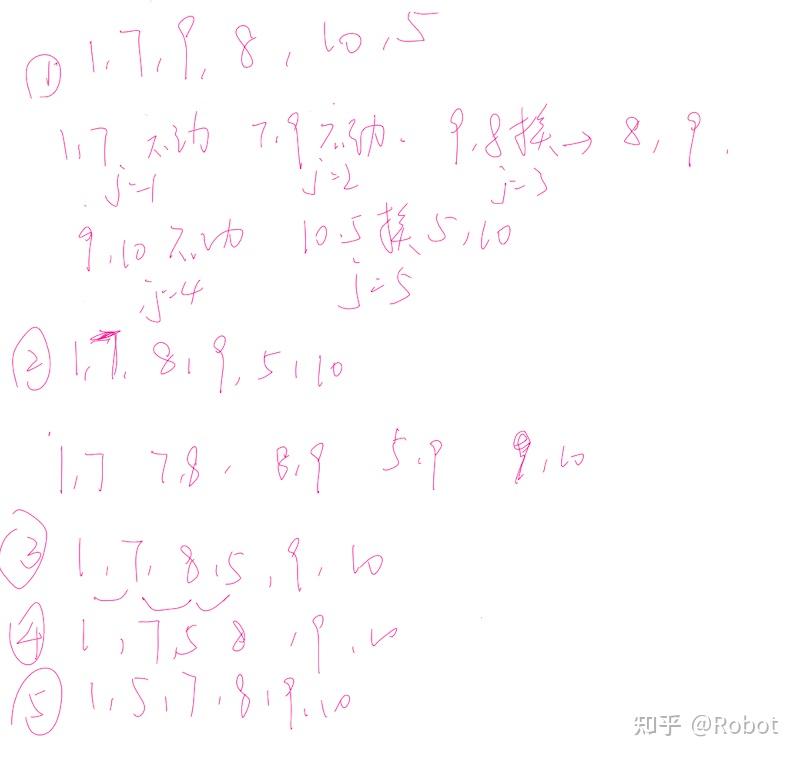 ① 1,7,9,8,10,5
1,7 不动 7,9 不动. 9,8换→8,9.
j=1 j=2 j=3
9,10不动 10.5换5,10
j=4 j=5
② 1,7,8,9,5,10
1,7 7,8, 8,9 5,9 9,10
③ 1,7,8,5,9,10
④ 1,7,5 8,9,10
⑤ 1,5,7,8,9,10
知乎 @Robot